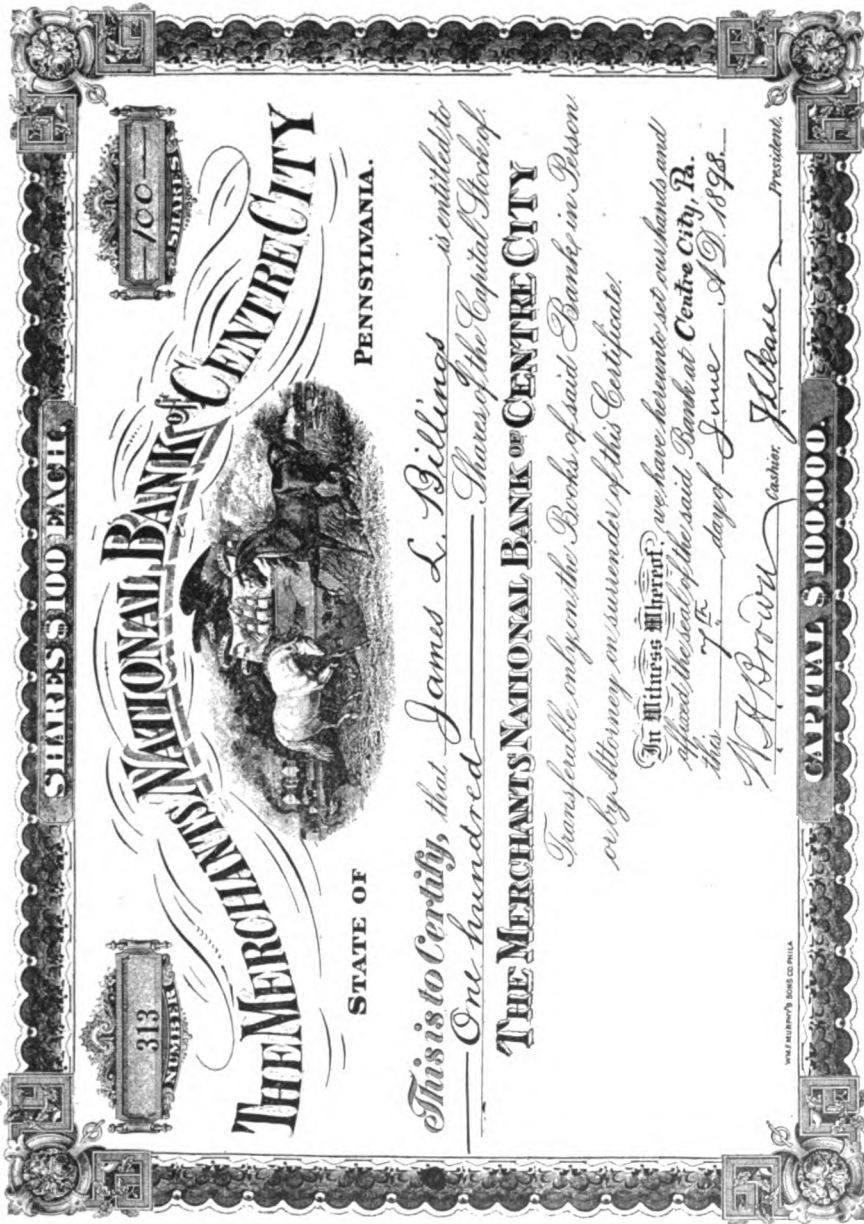 SHARES $100 EACH.
313
NUMBER
100
SHARES
THE MERCHANTS NATIONAL BANK OF CENTRE CITY
STATE OF PENNSYLVANIA.
This is to Certify, that James L. Billings is entitled to
One hundred Shares of the Capital Stock of
THE MERCHANTS NATIONAL BANK OF CENTRE CITY
Transferable only on the Books of said Bank, in Person
or by Attorney on surrender of this Certificate.
In Witness Whereof, we have hereunto set our hands and
affixed the seal of the said Bank at Centre City, Pa.
this 7th day of June A.D. 1898.
W. H. Brown Cashier. President.
WM. F. MURPHY'S SONS CO. PHILA
CAPITAL $100.000.